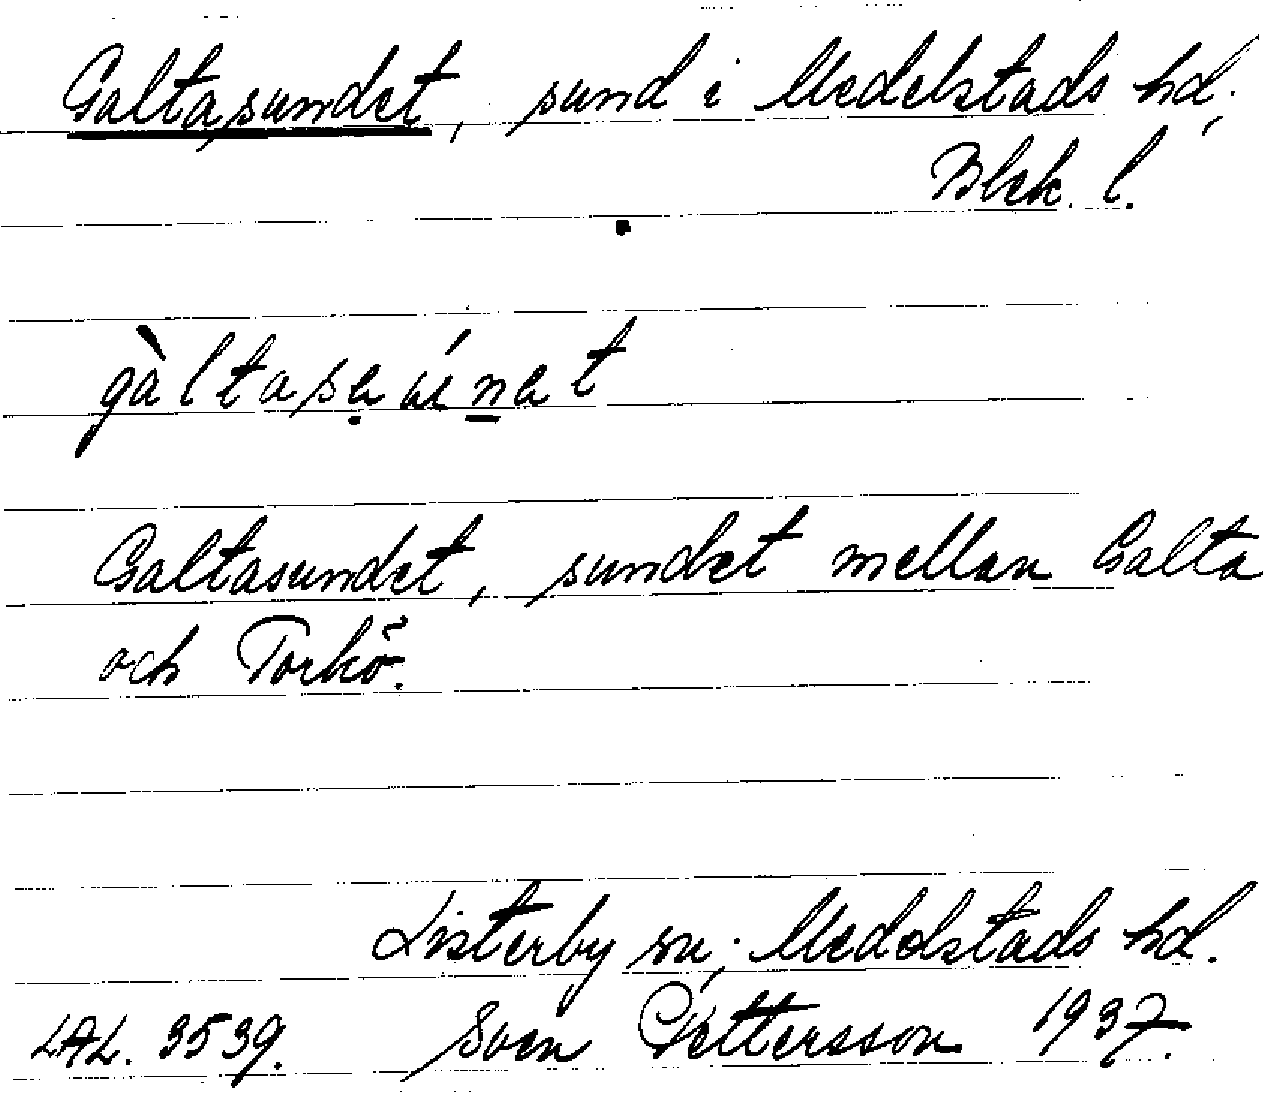 Galtasundet, sund i Medelstads hd,
Blek. l.
Galtasundet, sundet mellan Galta
och Torkö.
Listerby sn, Medelstads hd.
LAL. 3539. Sven Pettersson 1937.